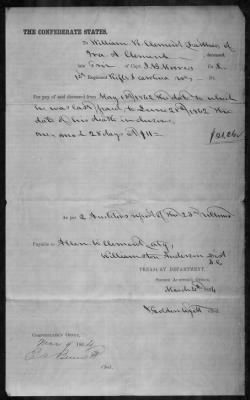 THE CONFEDERATE STATES,
To William W Clement, Father of
Ira A Clement deceased,
late Priv of Capt. J. B. Moore's Co. I,
1st Regiment Rifles S Carolina Vols
For pay of said deceased from May 1st 1862 the date to which
he was last paid to June 28th 1862 the
date of his death in
one mo & 28 days at $11=
As per 2 Auditors report of the 23d
Payable to Allen W Clement, atty,
Williamston Anderson Dist
S.C.
TREASURY DEPARTMENT,
SECOND AUDITOR'S OFFICE,
March 4th 1864
COMPTROLLER'S OFFICE,
Mar 9 1864